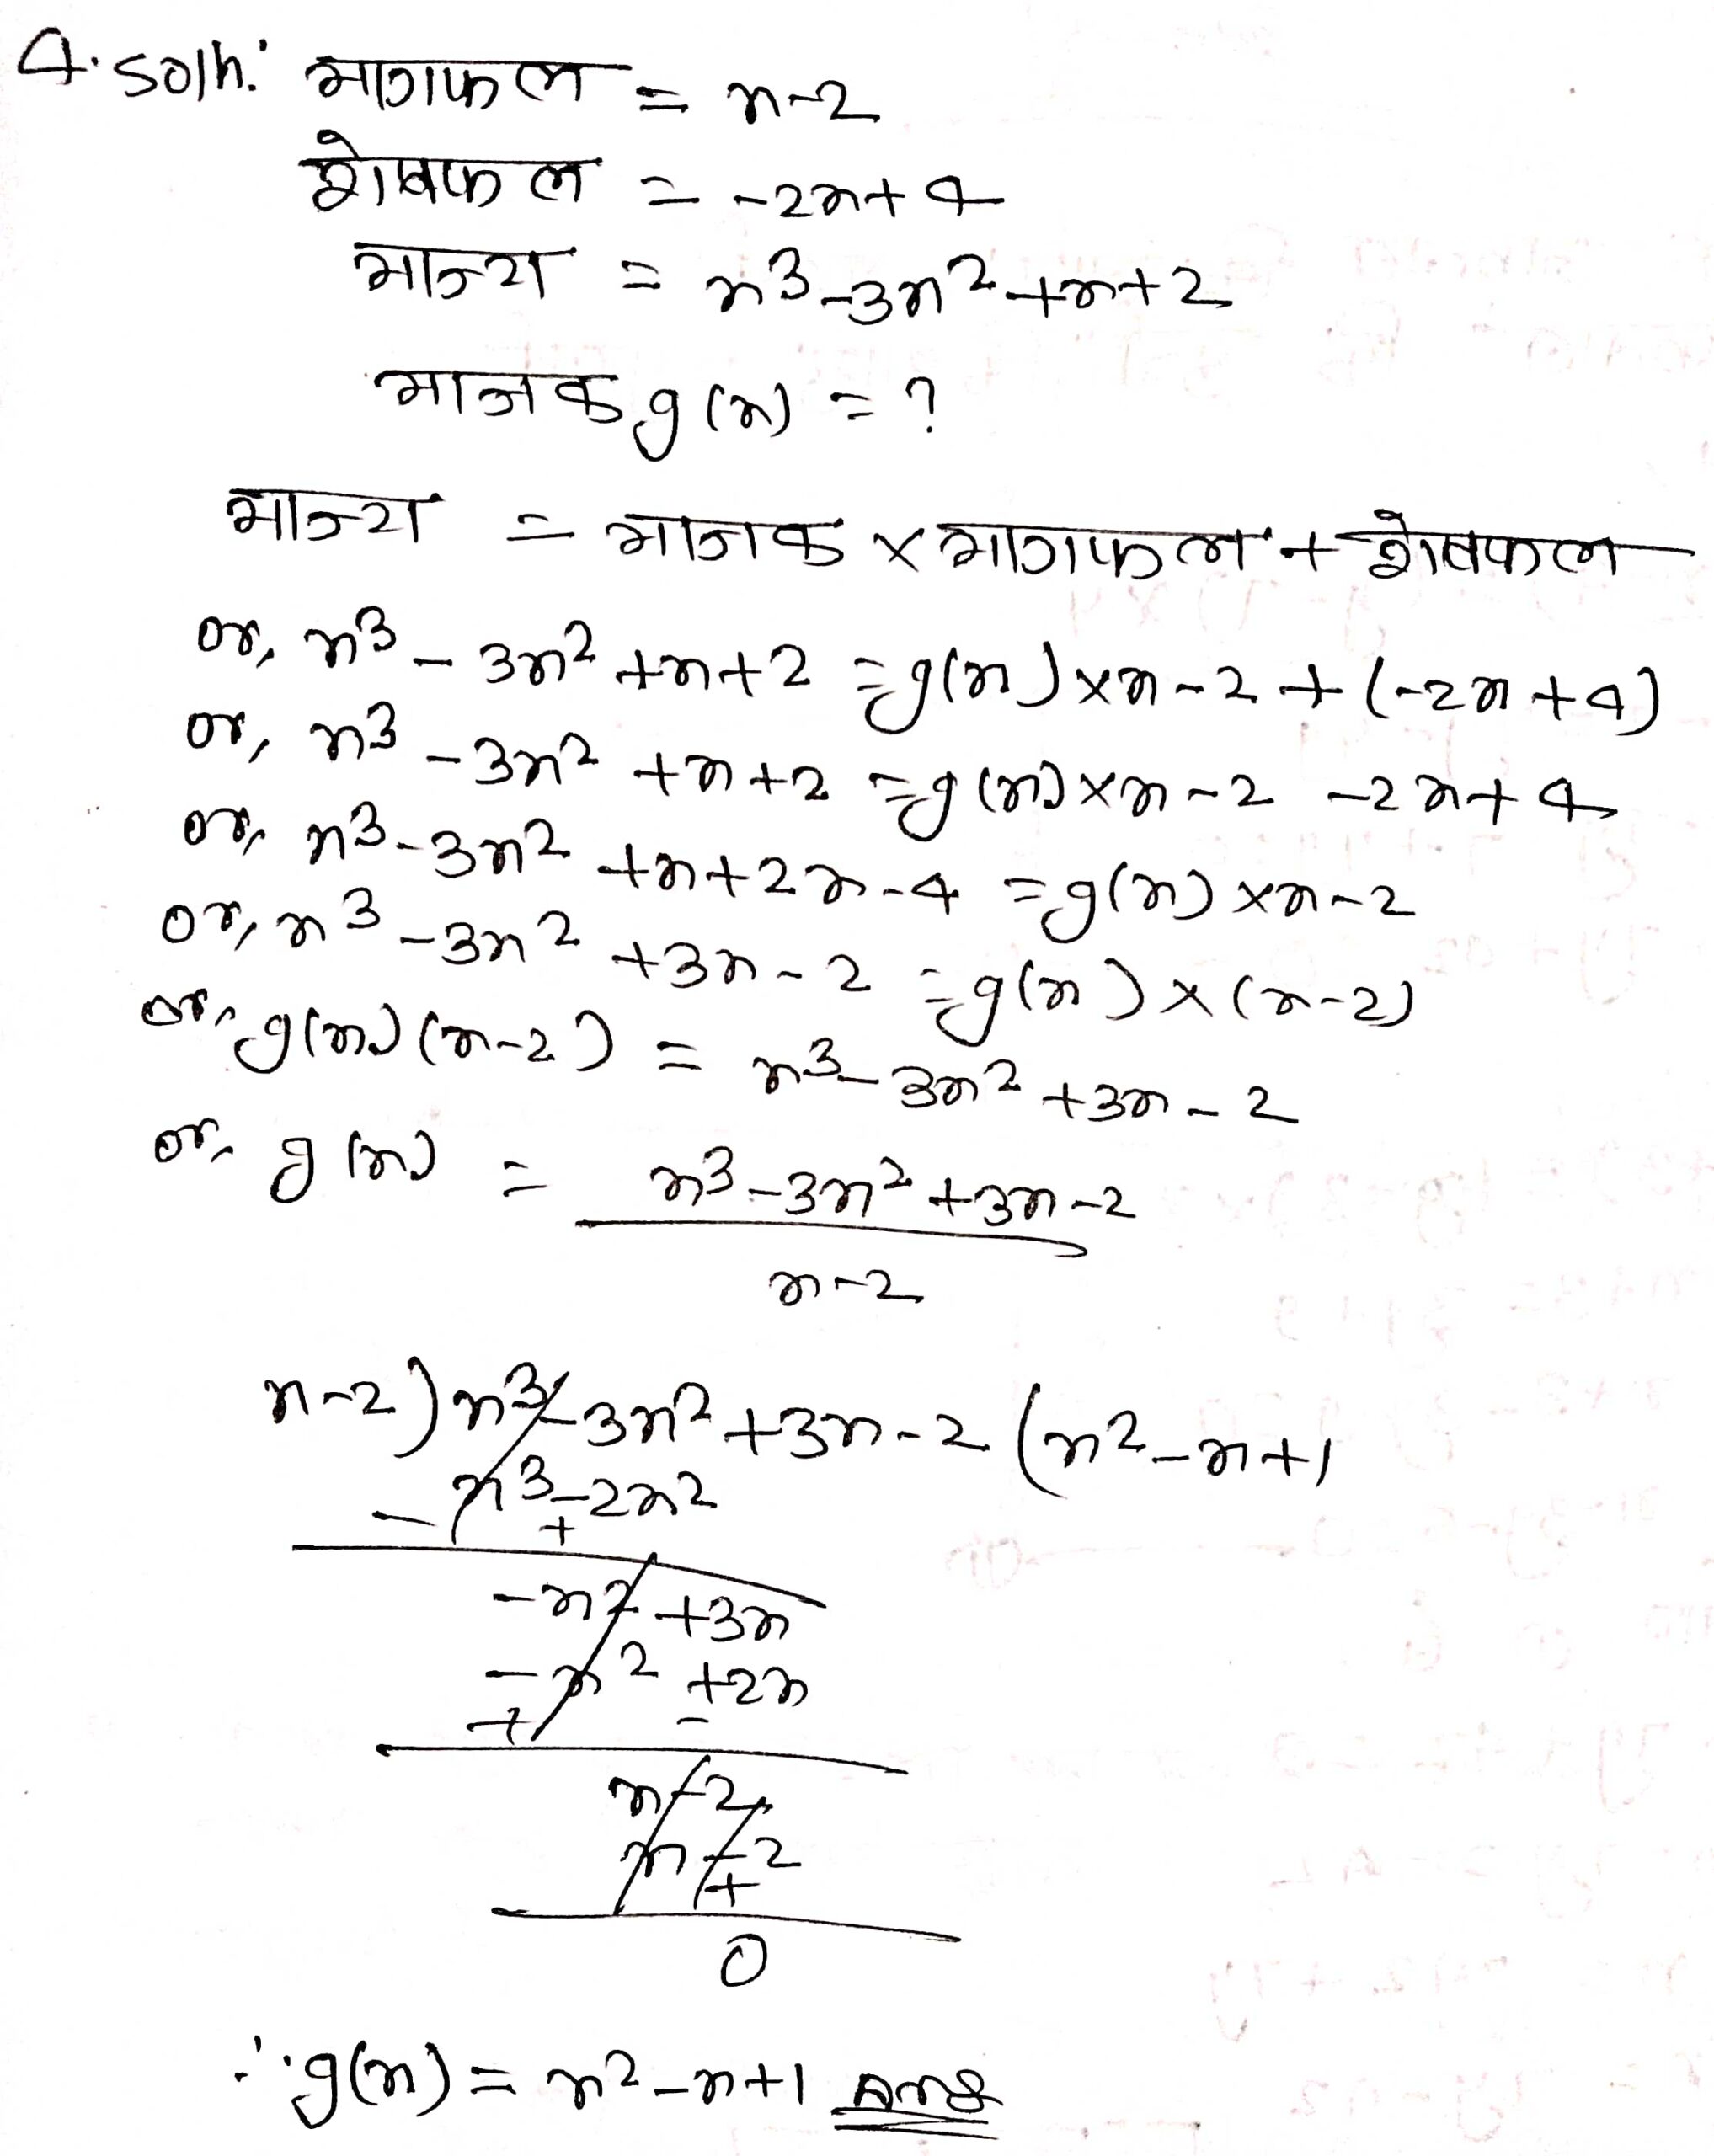 4. Soln: भागफल = x-2
शेषफल = -2x+4
भाज्य = x³-3x²+x+2
भाजक g(x) = ?
भाज्य = भाजक × भागफल + शेषफल
or, x³ - 3x² + x + 2 = g(x) × x - 2 + (-2x + 4)
or, x³ - 3x² + x + 2 = g(x) × x - 2 - 2x + 4
or, x³ - 3x² + x + 2x - 4 = g(x) × x - 2
or, x³ - 3x² + 3x - 2 = g(x) × (x-2)
or, g(x) (x-2) = x³ - 3x² + 3x - 2
or, g(x) = x³ - 3x² + 3x - 2
x-2
x-2 ) x³ - 3x² + 3x - 2 ( x² - x + 1
x³ - 2x²
- +
-x² + 3x
-x² + 2x
+ -
x - 2
x - 2
- +
0
∴ g(x) = x² - x + 1 Ans